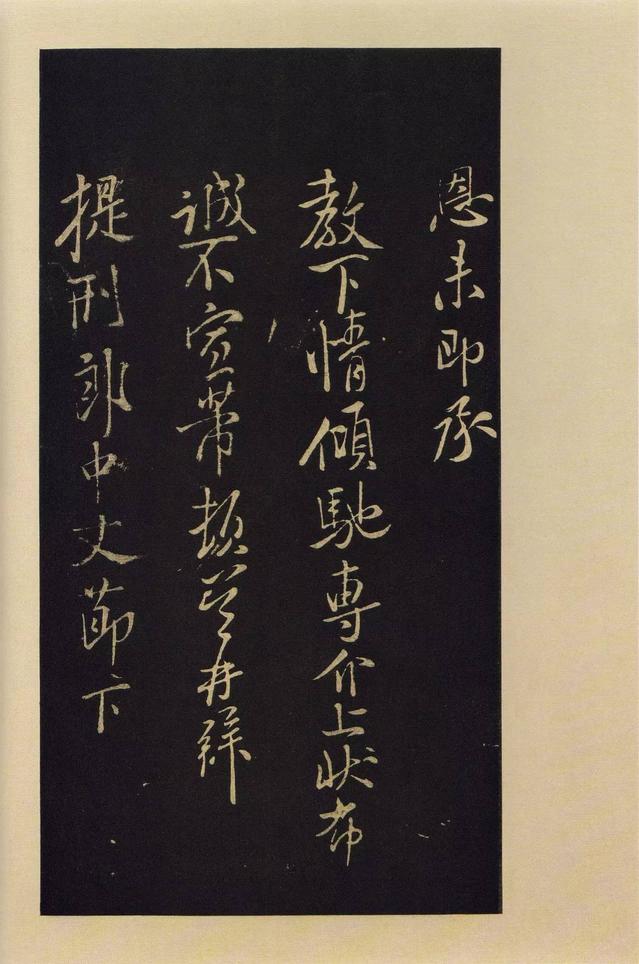 恩未即承
教下情傾馳專介上狀布
誠不宣芾頓首再拜
提刑郎中丈節下